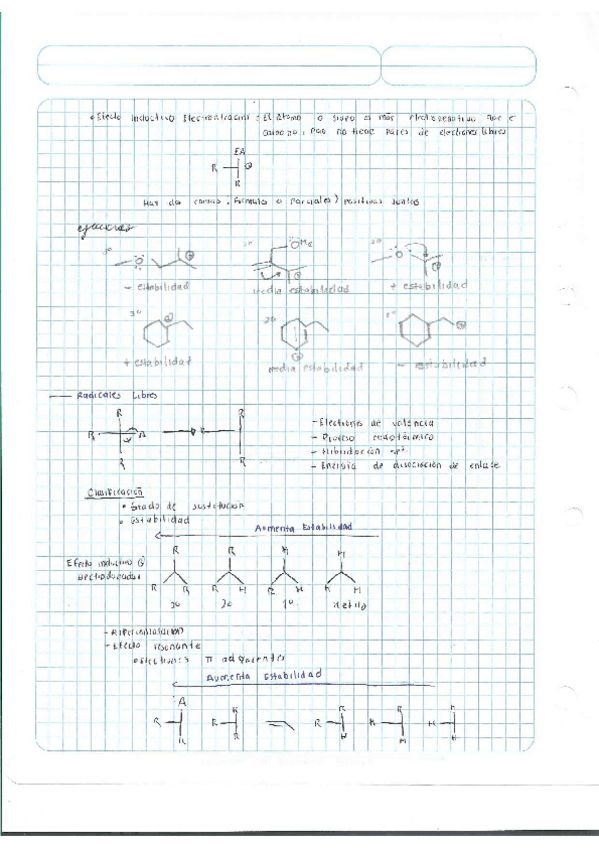 • Efecto inductivo Electroatractor: El átomo o grupo es más electronegativo que el
Carbono, pero no tiene pares de electrones libres
EA
R ⊕
R
Hay dos cargas (formales o parciales) positivas juntas
ejercicios
3° 1° 2°
O OMe O
- estabilidad media estabilidad + estabilidad
3° 2° 1°
+ estabilidad media estabilidad - estabilidad
Radicales Libres
R R
R A
R R
- Electrones de valencia
- Proceso
- Hibridación sp²
- Energía de disociación de enlace
Clasificación
• Grado de sustitución
• Estabilidad
Aumenta Estabilidad
Efecto inductivo
electrodonador
R R H H
R R R H R H R H
3° 2° 1° Metilo
- Hiperconjugación
- Efecto resonante
electrones π adyacentes
Aumenta Estabilidad
A R R R R
R R R H
R R H H H